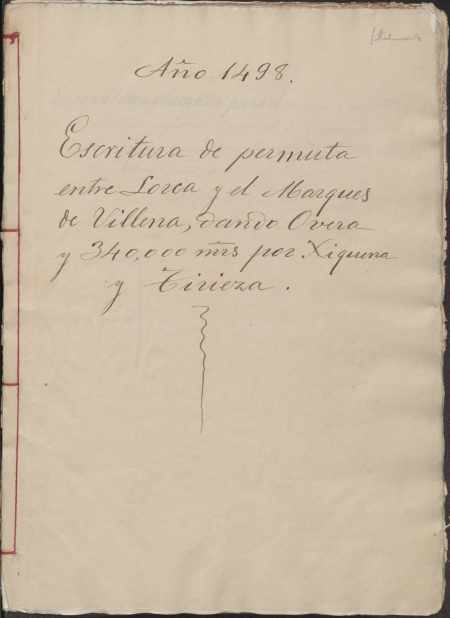 Año 1498.
Escritura de permuta
entre Lorca y el Marques
de Villena, dando Overa
y 340,000 mrs por Xiquena
y Tirieza.